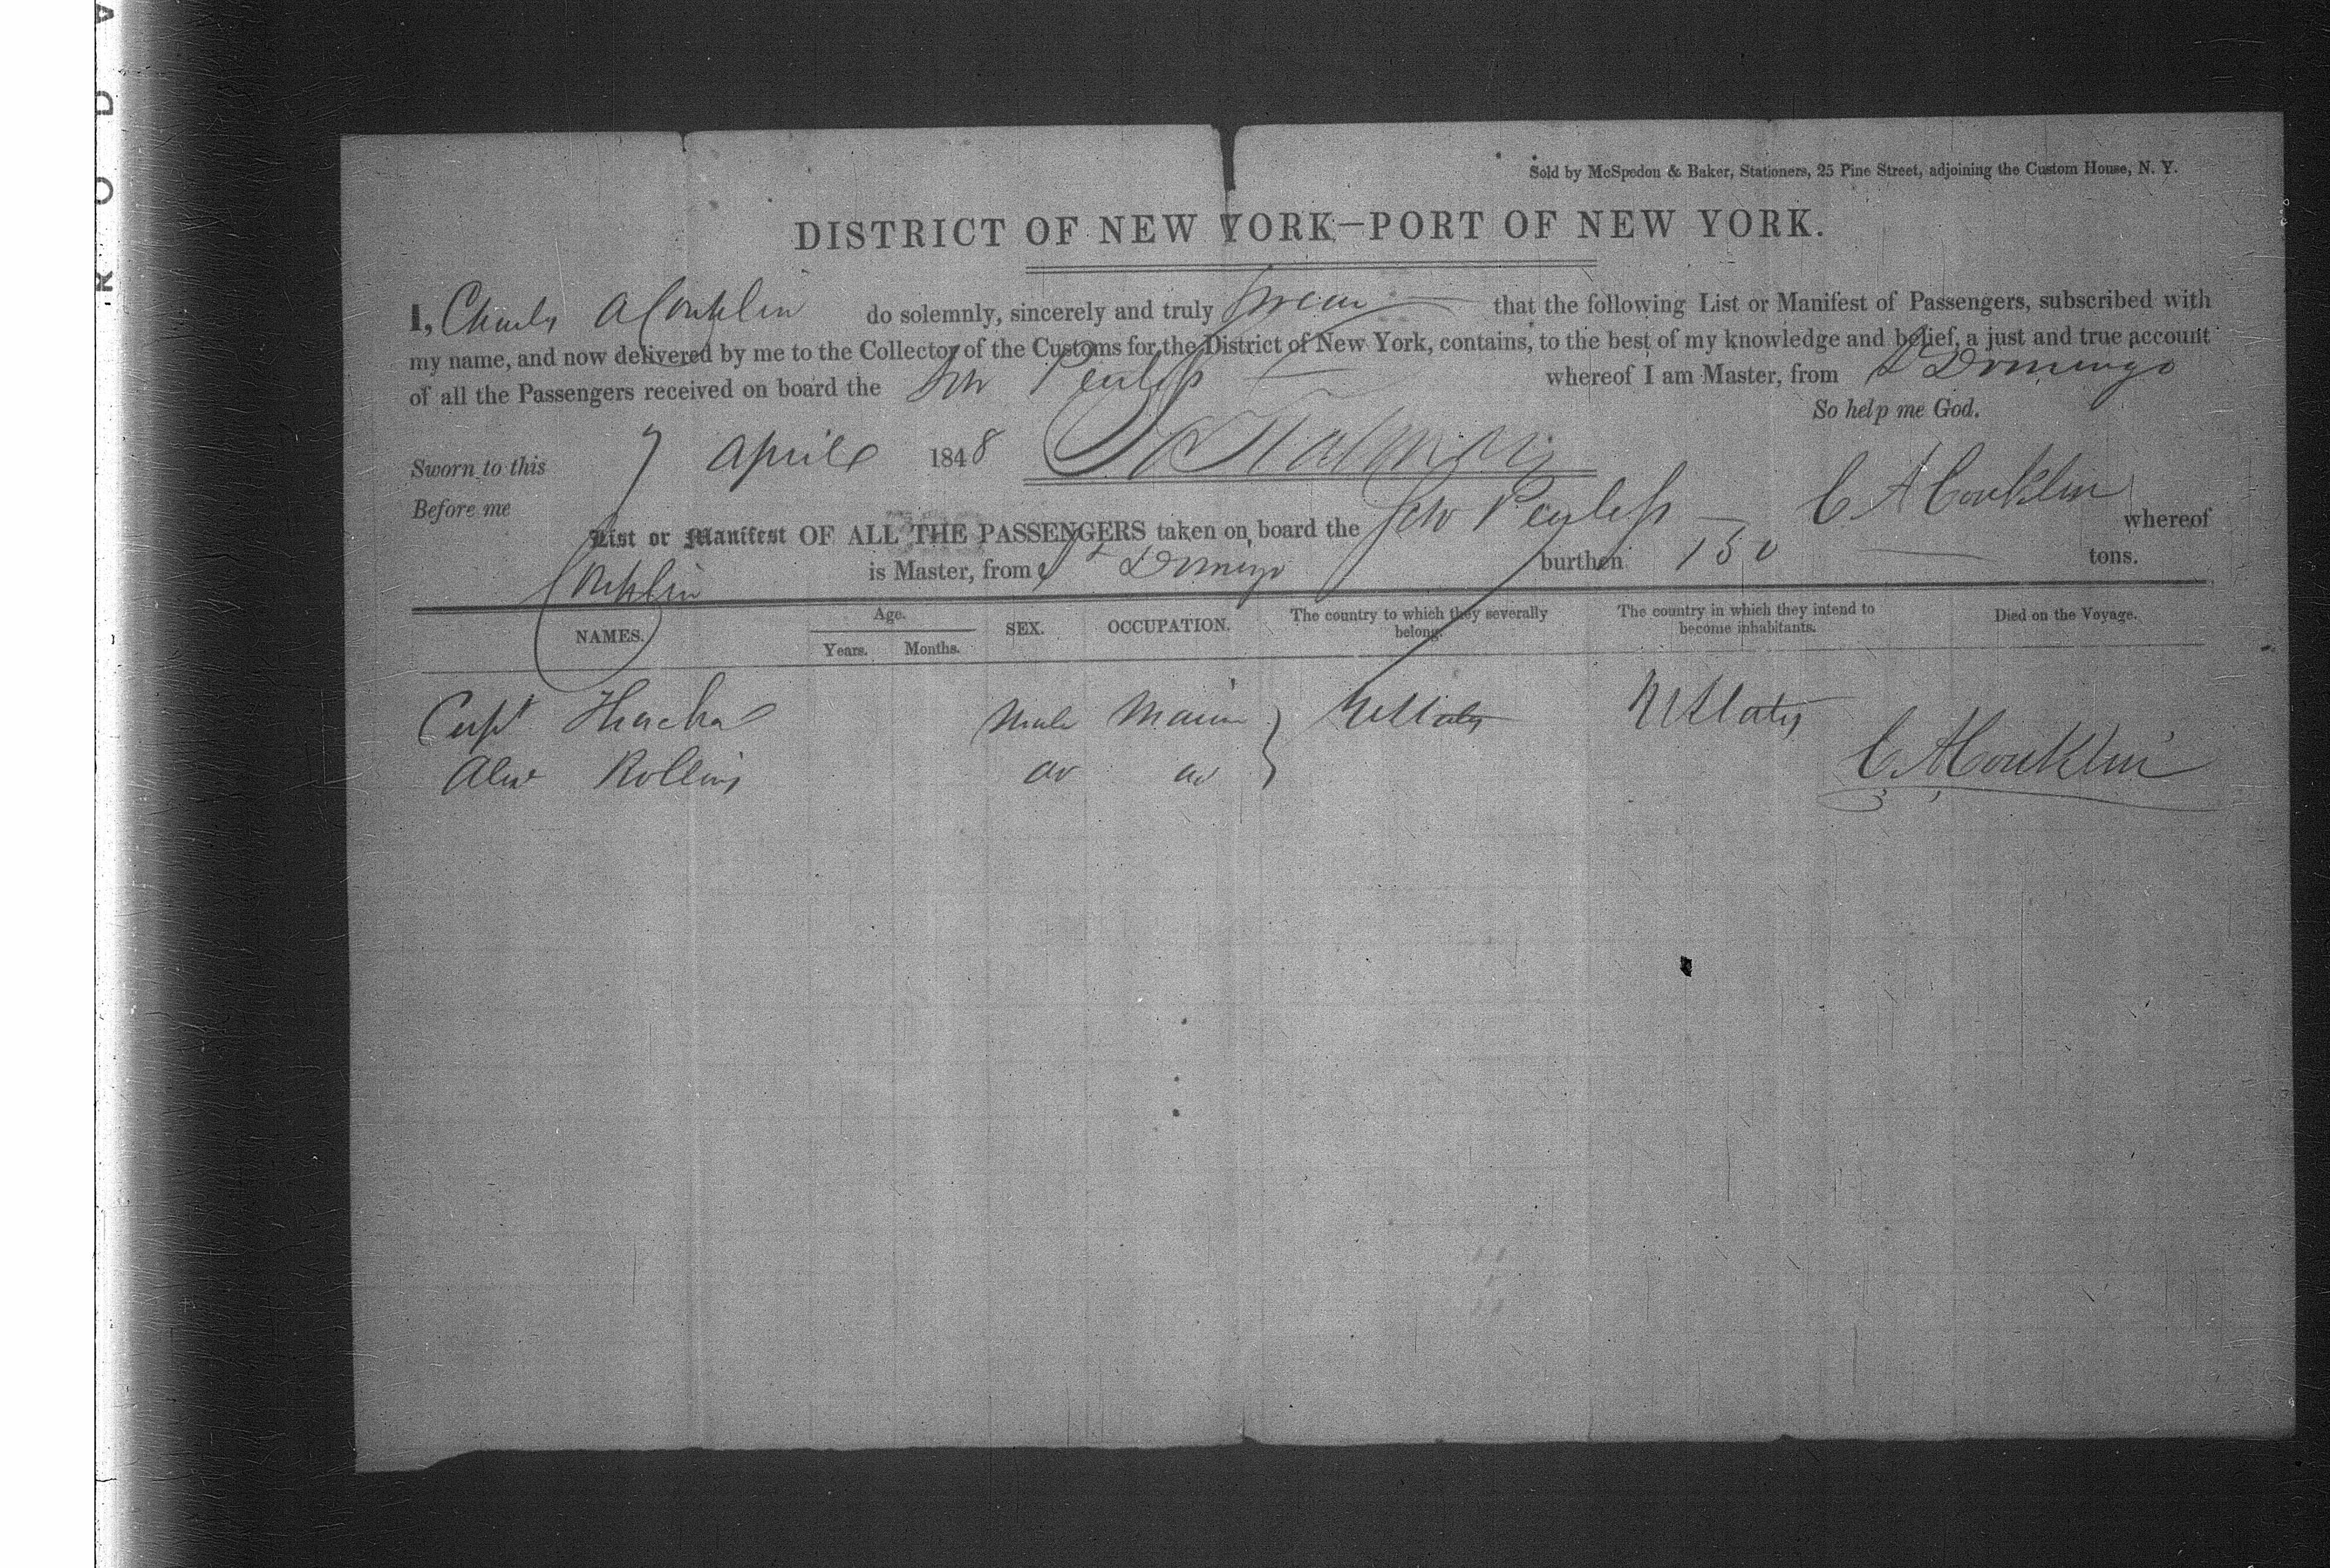 Sold by McSpedon & Baker, Stationers, 25 Pine Street, adjoining the Custom House, N. Y.
DISTRICT OF NEW YORK—PORT OF NEW YORK.
I, Charles A Conklin do solemnly, sincerely and truly swear that the following List or Manifest of Passengers, subscribed with
my name, and now delivered by me to the Collector of the Customs for the District of New York, contains, to the best of my knowledge and belief, a just and true account
of all the Passengers received on board the Sch Peerless whereof I am Master, from St Domingo
So help me God.
Sworn to this 7 April 1848
Before me C A Conklin
List or Manifest OF ALL THE PASSENGERS taken on board the Sch Peerless whereof
Conklin is Master, from St Domingo burthen 150 tons.
NAMES. Age. Years. Months. SEX. OCCUPATION. The country to which they severally belong. The country in which they intend to become inhabitants. Died on the Voyage.
Capt Male U States U States
Alex Rollins do do
C A Conklin